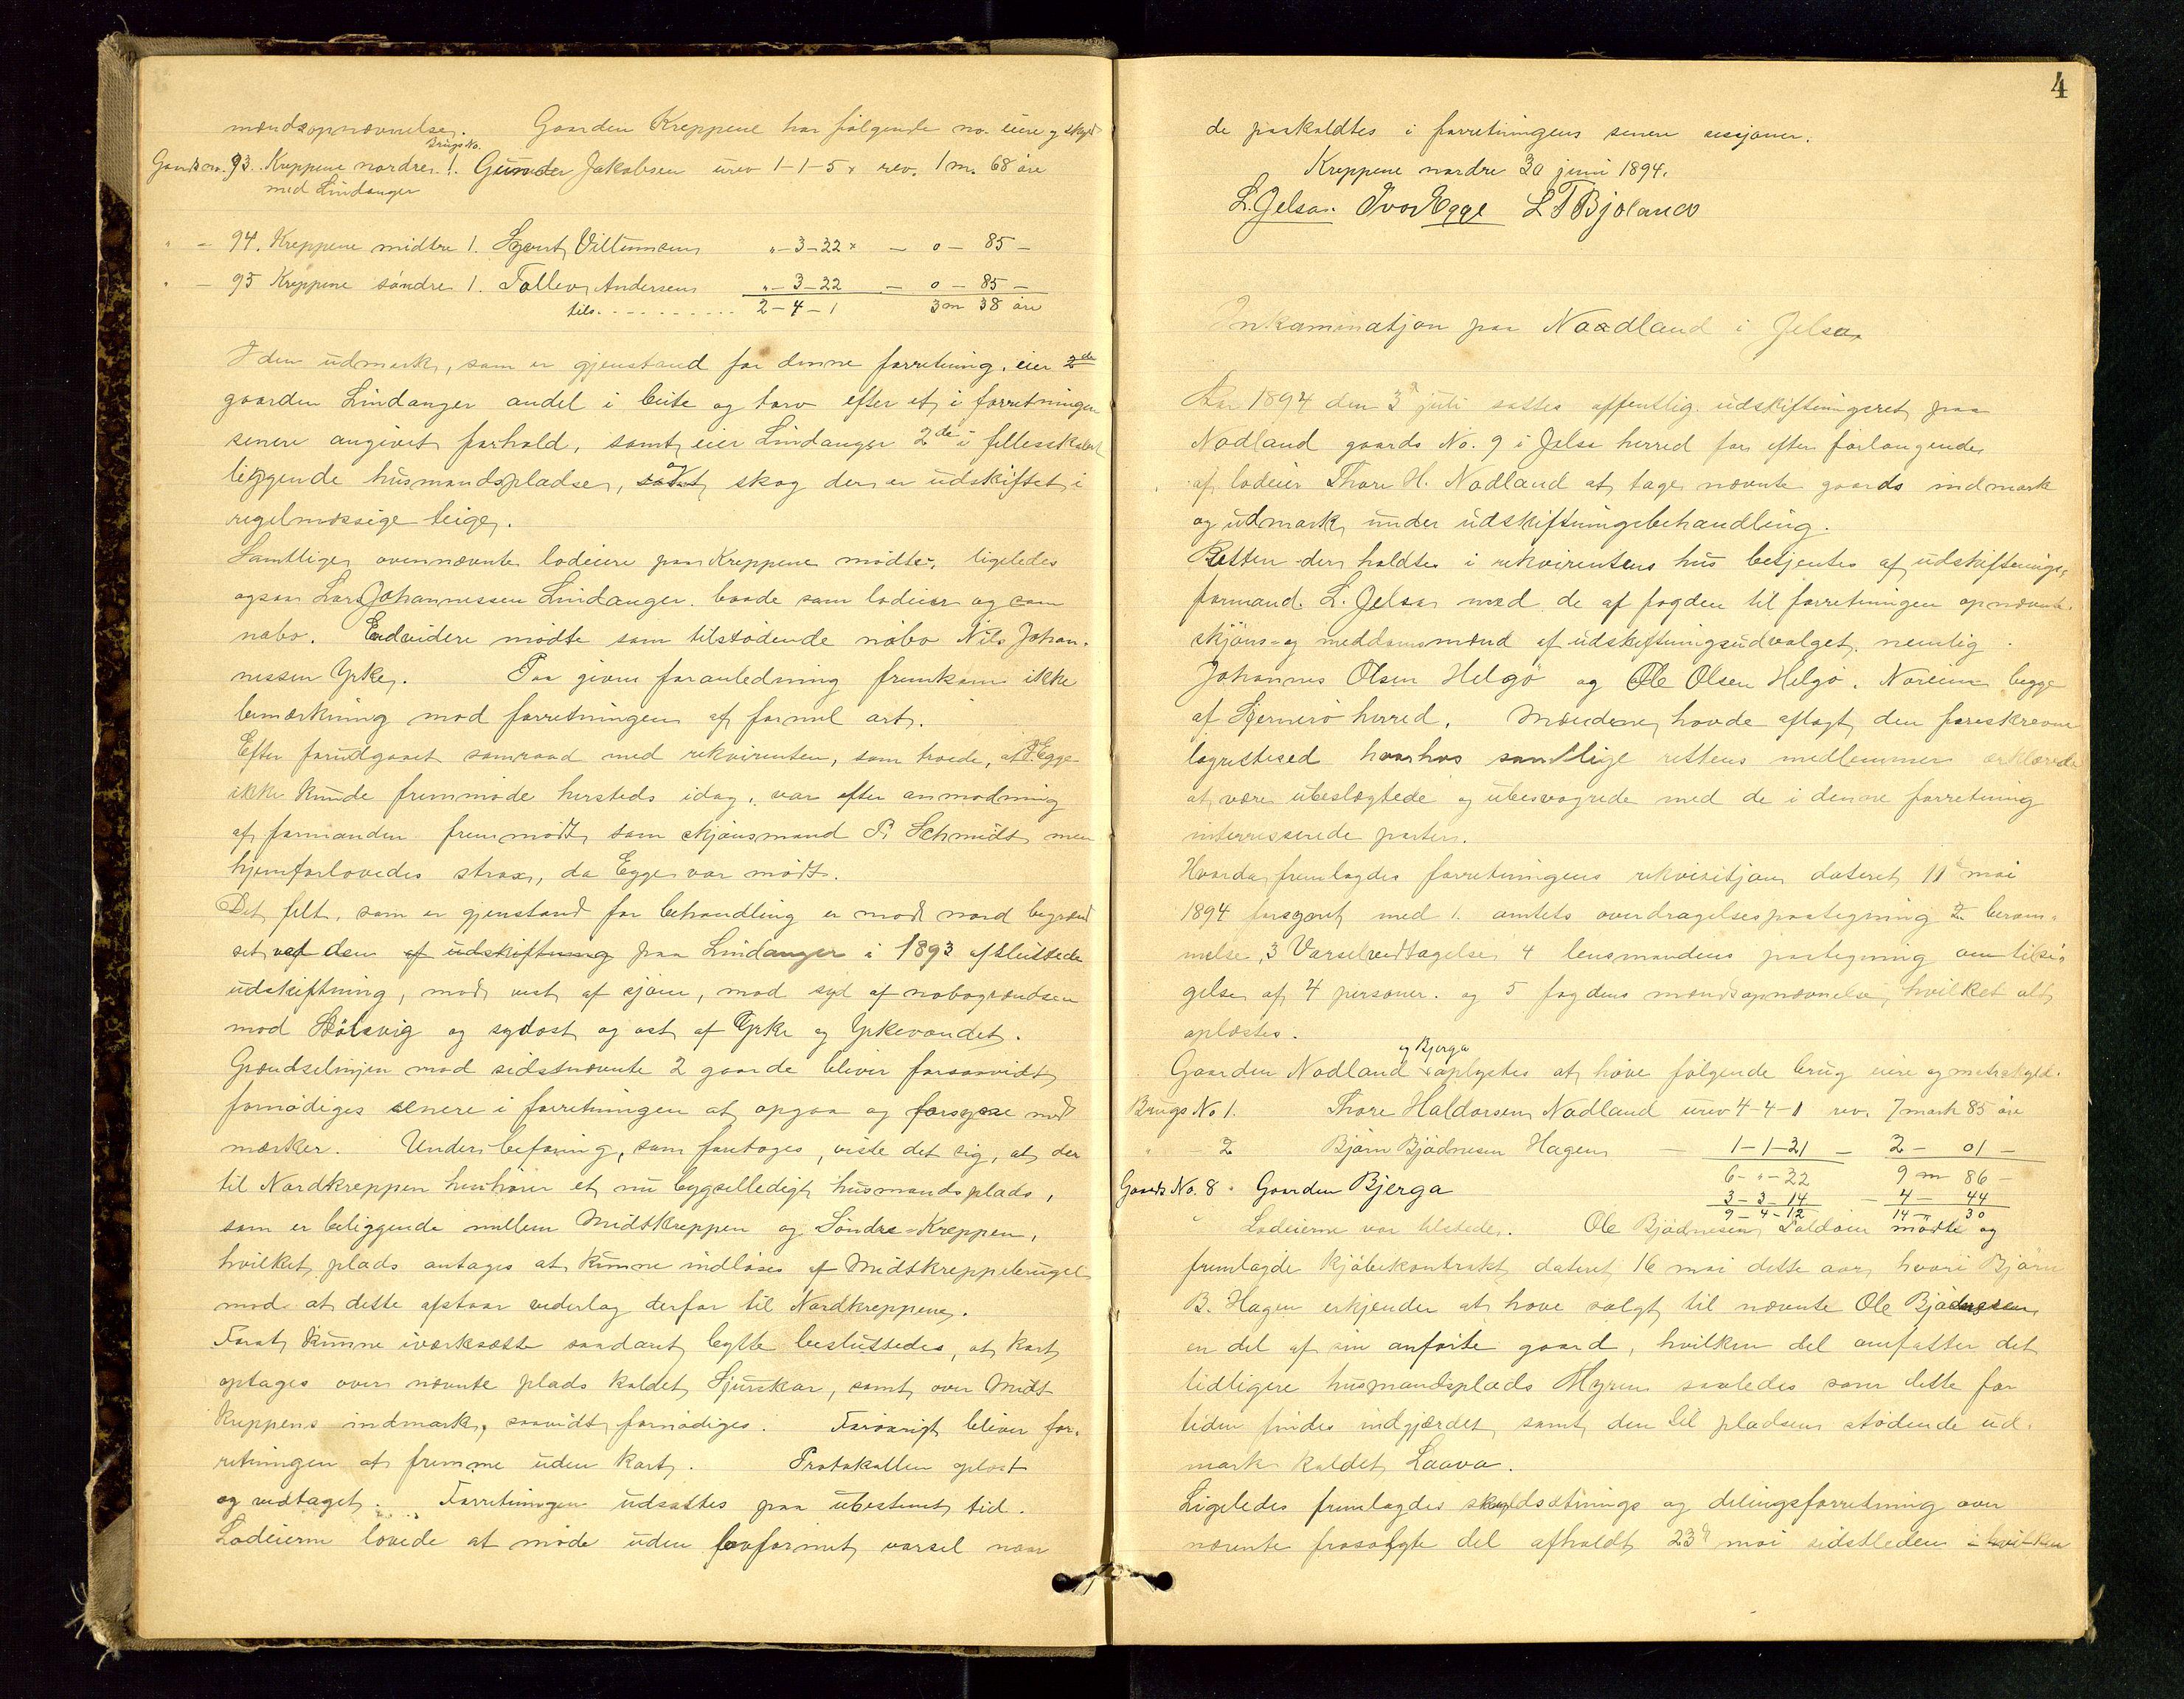 mændsopnævnelse. Gaarden Kreppene har følgende no. eiere og skyld
Brugs No.
Gaards no. 93. Kreppene nordre 1. Gunder Jakobsen urev 1-1-5 x rev. 1 m. 68 øre
med Lindanger
" - 94. Kreppene midtre 1. Sjovat Villumsen " - 3 - 22 x - 0 - 85 -
" - 95 Kreppene søndre 1. Tollev Andersen " - 3 - 22 - 0 - 85 -
tils. . . . . . . . . . . 2 - 4 - 1 3 m 38 øre
I den udmark, som er gjenstand for denne forretning, eier 2de
gaarden Lindanger andel i beite og torv efter et i forretningen
senere angivet forhold, samt eier Lindanger 2de i fellesskabet
liggende husmandspladse, og samt skog der er udskiftet i
regelmæssige teige.
Samtlige ovennævnte lodeiere paa Kreppene mødte, ligeledes
ogsaa Lars Johannessen Lindanger baade som lodeier og som
nabo. Endvidere mødte som tilstødende nabo Nils Johan-
nessen Yrke. Paa given foranledning fremkom ikke
bemærkning mod forretningen af formel art.
Efter forudgaaet samraad med rekvirenten, som troede, at I. Egge
ikke kunde fremmøde hersteds idag, var efter anmodning
af formanden fremmødt som skjønsmand P. Schmidt men
hjemforlovedes strax, da Egge var mødt.
Det felt, som er gjenstand for behandling er mod nord begrænd
set ved den af udskiftning paa Lindanger i 1893 afsluttede
udskiftning, mod vest af sjøen, mod syd af nabogrændsen
mod Hølsvig og sydost og ost af Yrke og Yrkevandet.
Grændselinjen mod sidstnævnte 2 gaarde bliver forsaavidt
fornødiges senere i forretningen at opgaa og forsyne med
mærker. Under befaring, som foretoges, viste det sig, at der
til Nordkreppen henhører et nu bygselledigt husmandsplads,
som er beliggende mellem Midtkreppen og Søndre-Kreppen,
hvilket plads antages at kunne indløses af Midtkreppebruget
mod at dette afstaar vederlag derfor til Nordkreppene.
For at kunne iværksætte saadant bytte besluttedes, at kart
optages over nævnte plads kaldet Sjurskar, samt over Midt
kreppens indmark, saavidt fornødiges. Forøvrigt bliver for-
retningen at fremme uden kart. Protokollen oplæst
og vedtaget. Forretningen udsættes paa ubestemt tid.
Lodeierne lovede at møde uden lovformet varsel naar
4
de paakaldtes i forretningens senere sessjoner.
Kreppene nordre 30 juni 1894.
L. Jelsa. Ivar Egge L T Bjoland
Inkaminatjon paa Naadland i Jelsa
Aar 1894 den 3d juli sattes offentlig udskiftningsret paa
Nodland gaards No. 9 i Jelse herred for efter forlangende
af lodeier Thore H. Nodland at tage nævnte gaards indmark
og udmark under udskiftningsbehandling.
Retten der holdtes i rekvirentens hus betjentes af udskiftnings-
formand L. Jelsa med de af fogden til forretningen opnævnte
skjøns- og meddomsmænd af udskiftningsudvalget, nemlig
Johannes Olsen Helgø og Ole Olsen Helgø, Noreim begge
af Sjernerø herred. Mændene havde aflagt den foreskrevne
lagrettesed hvorhos samtlige rettens medlemmer erklærede
at være ubeslægtede og ubesvogrede med de i denne forretning
interresserede parter.
Hvorda fremlagdes forretningens rekvisitjon dateret 11te mai
1894 forsynet med 1. amtets overdragelsespaategning 2. beram-
melse, 3 Varselvedtagelse, 4 lensmandens paategning om tilsi-
gelse af 4 personer. og 5 fogdens mændsopnævnelse, hvilket alt
oplæstes.
og Bjerga
Gaarden Nodland oplystes at have følgende brug eiere og matr.skyld.
Brugs No 1. Thore Haldorsen Nodland urev 4-4-1 rev. 7 mark 85 øre
" 2 Bjørn Bjødnesen Hagen - 1-1-21 - 2 - 01 -
6 - " - 22 9 m 86 -
Gaards No. 8. Gaarden Bjerga 3 - 3 - 14 - 4 - 44
9 - 4 - 12 14 - " 30
Lodeierne var tilstede. Ole Bjødnesen mødte og
fremlagde kjøbekontrakt dateret 16 mai dette aar, hvori Bjørn
B. Hagen erkjender at have solgt til nævnte Ole Bjødnesen
en del af sin anførte gaard, hvilken del omfatter det
tidligere husmandsplads Myren saaledes som dette for
tiden findes indgjærdet samt den til pladsen stødende ud-
mark kaldet Laava.
Ligeledes fremlagdes skyldsætnings og delingsforretning over
nævnte frasolgte del afholdt 23de mai sidstleden i hvilken